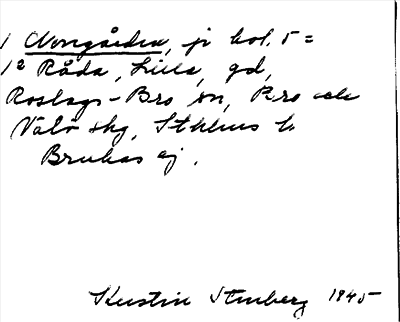 1 Norrgården, jr kol. 5 =
1² Råda, Lilla, gd,
Roslags-Bro sn, Bro och
Vätö skg, Sthlms l.
Brukas ej.
Kerstin Stenberg 1945